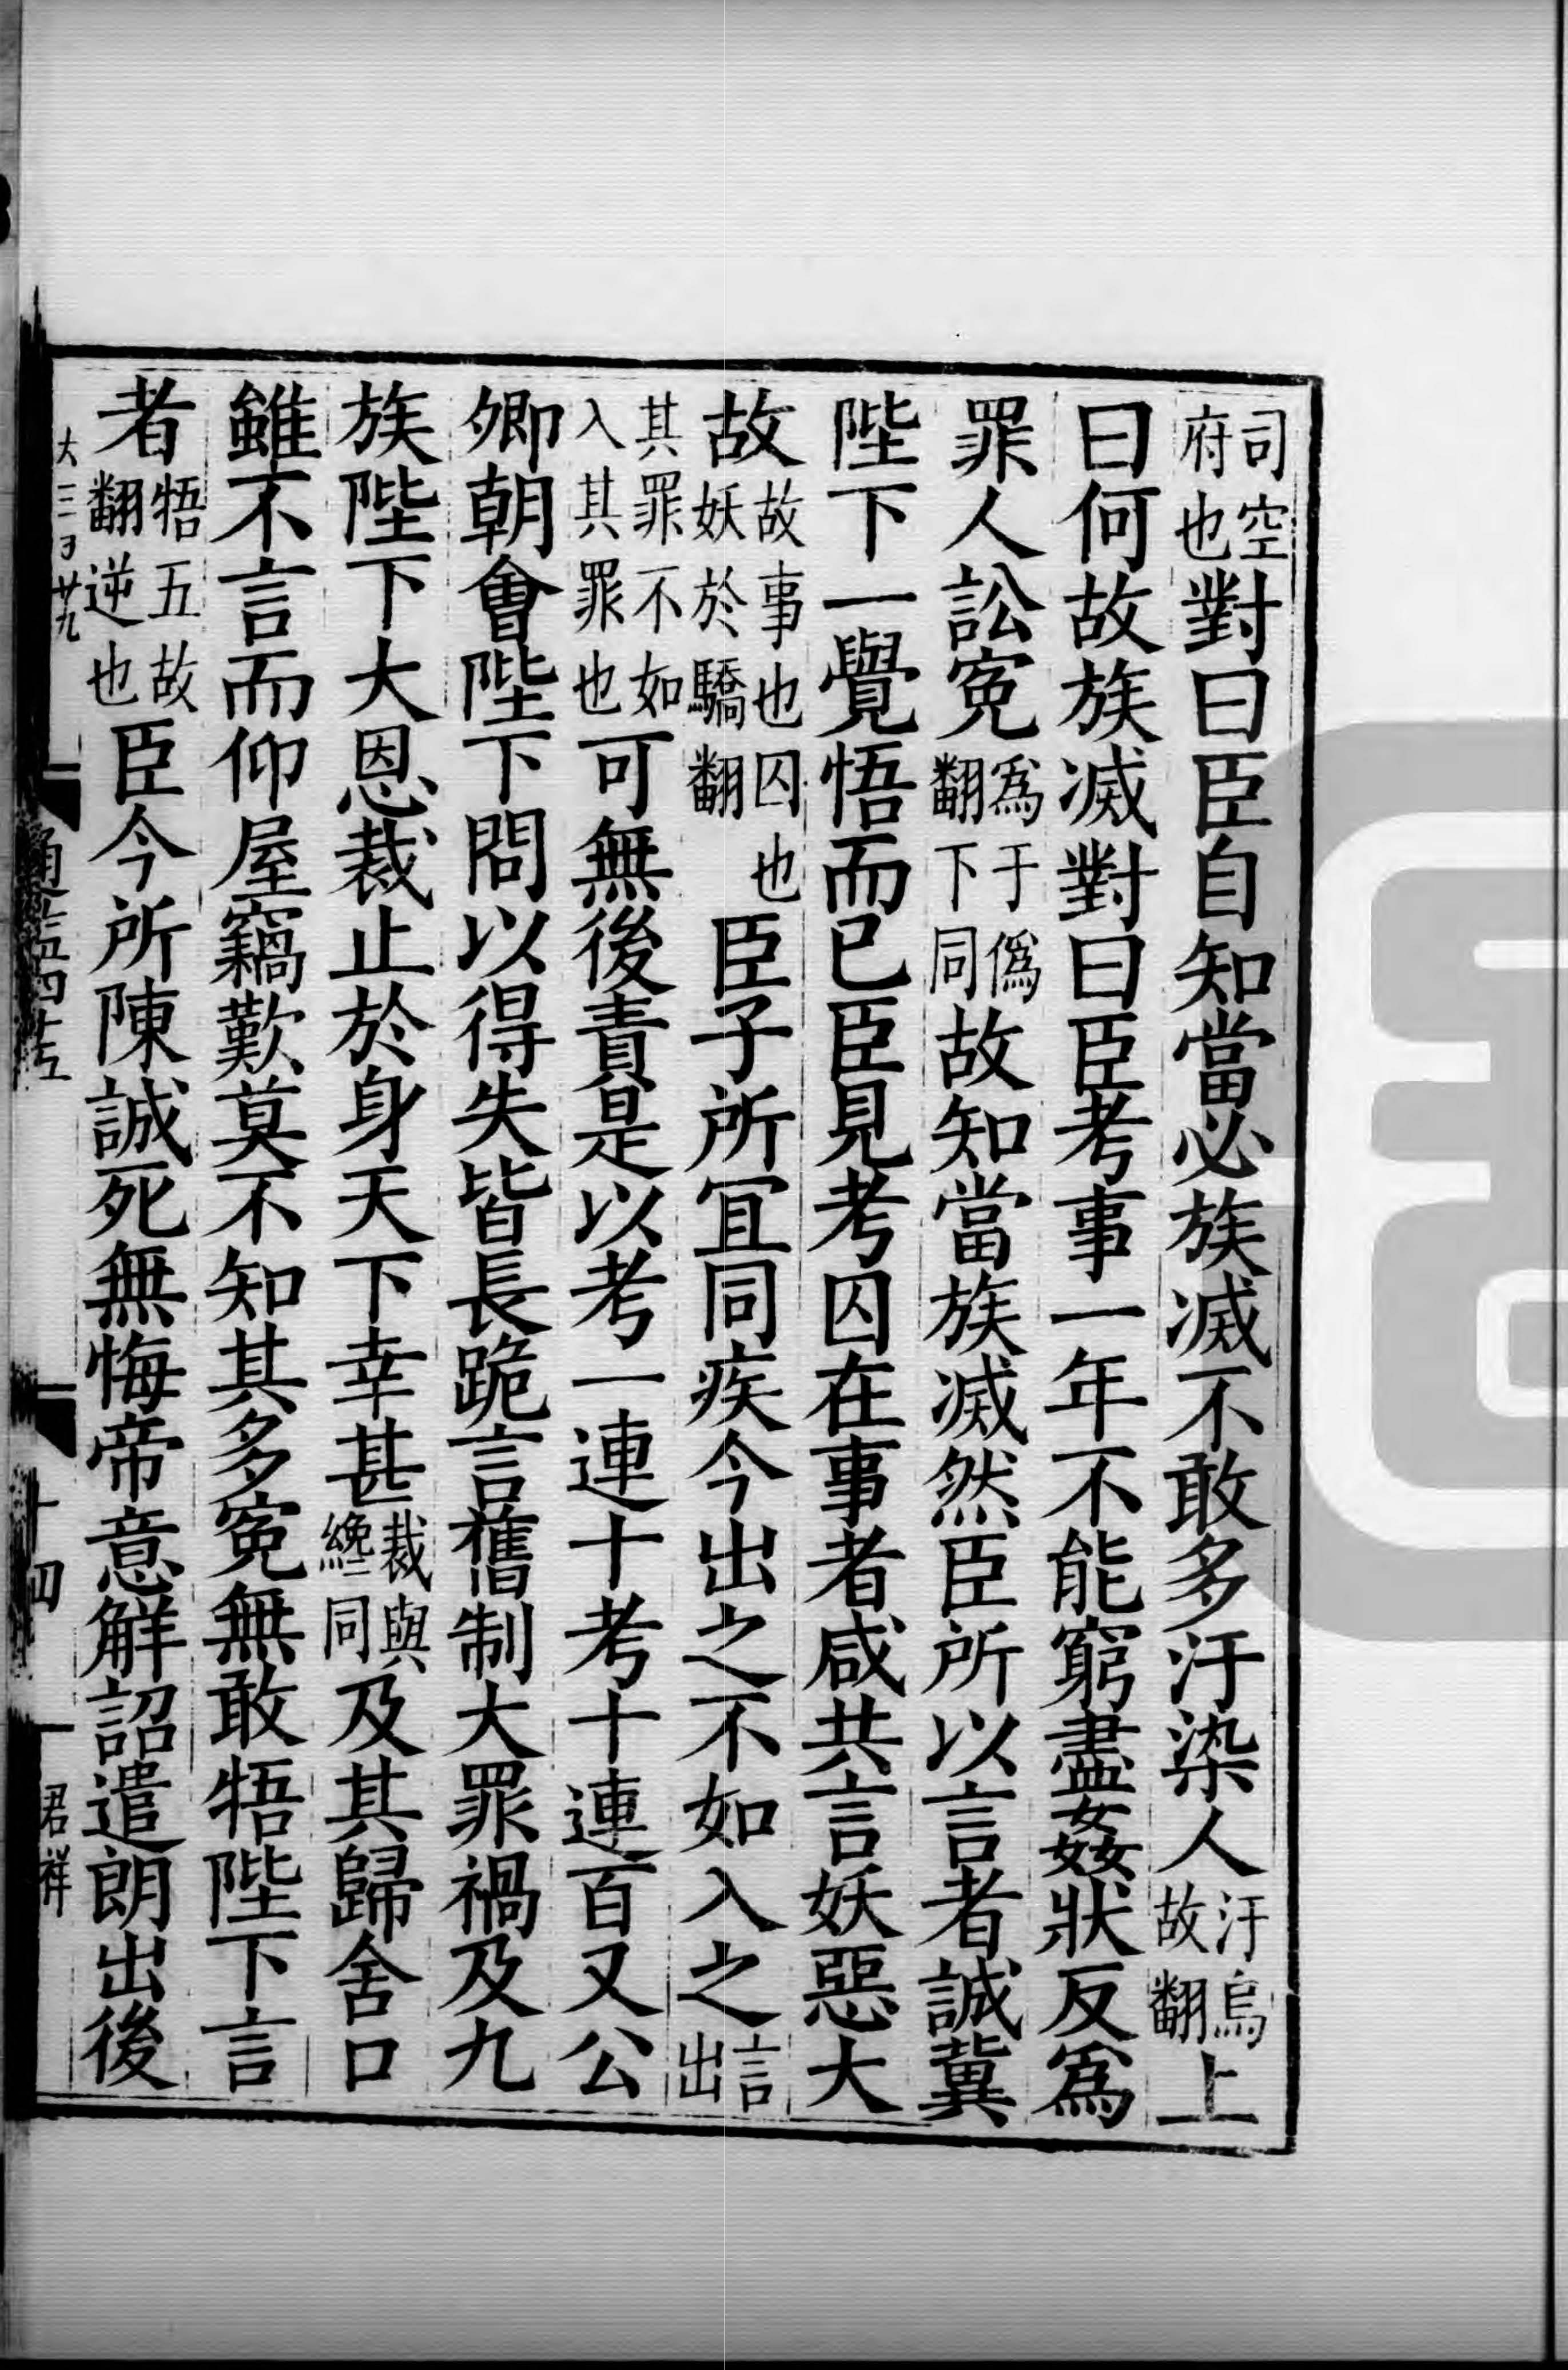 司空府也對曰臣自知當必族滅不敢多汙染人汙烏故翻上
曰何故族滅對曰臣考事一年不能窮盡姦狀反爲
罪人訟寃爲于僞翻下同故知當族滅然臣所以言者誠冀
陛下一覺悟而已臣見考囚在事者咸共言妖惡大
故故事也囚也妖於驕翻臣子所宜同疾今出之不如入之言出
其罪不如入其罪也可無後責是以考一連十考十連百又公
卿朝會陛下問以得失皆長跪言舊制大罪禍及九
族陛下大恩裁止於身天下幸甚裁與纔同及其歸舍口
雖不言而仰屋竊歎莫不知其多寃無敢牾陛下言
者牾五故翻逆也臣今所陳誠死無悔帝意解詔遣朗出後
十四
君祥